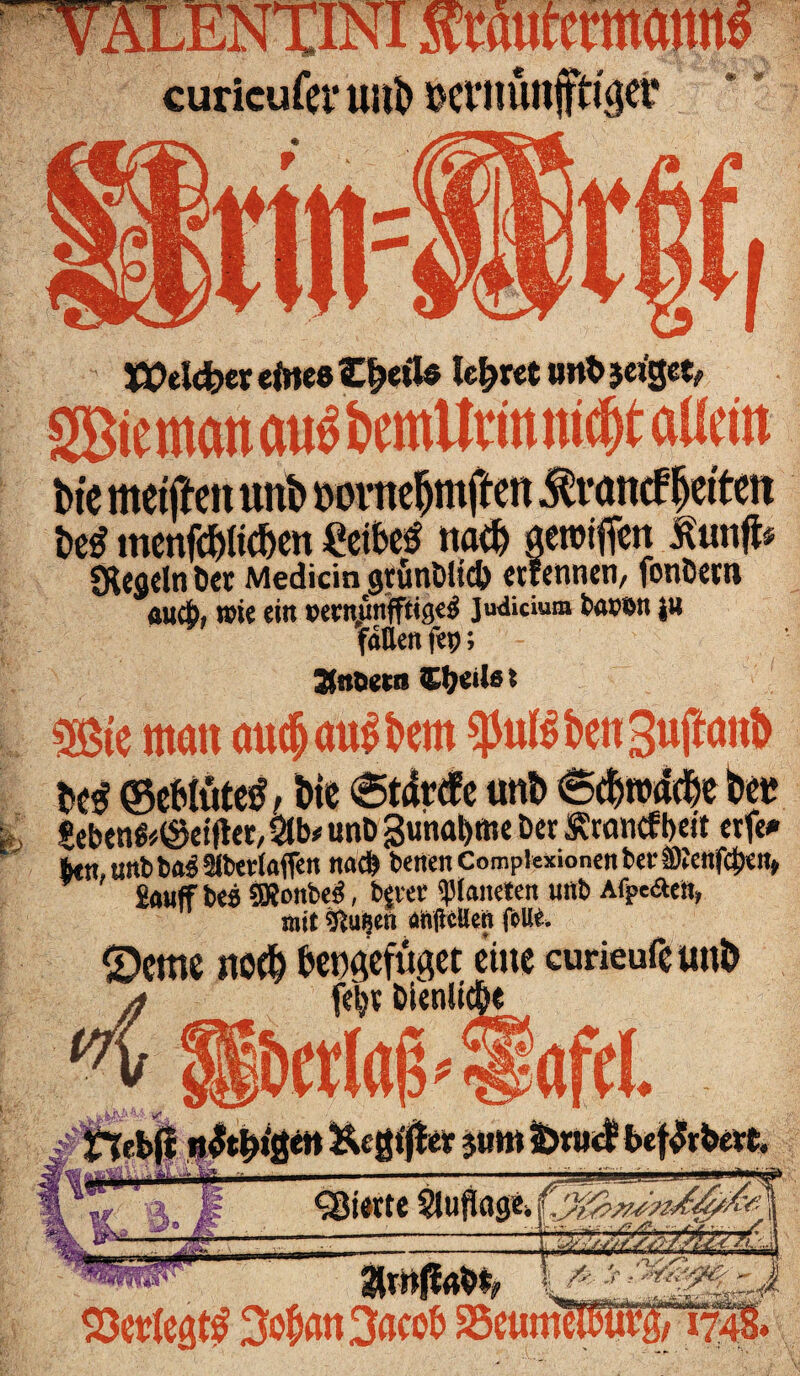 VALENTINI Kräutermanns
curieuser und vernünfftiger
Urin-Artzt,
Welcher eines Theils lehret und zeiget,
Wie man aus dem Urin nicht allein
die meisten und vornehmsten Kranckheiten
des menschlichen Leibes nach gewissen Kunst-
Regeln der Medicin gründlich erkennen, sondern
auch, wie ein vernünfftiges Judicium davon zu
fällen sey;
Andern Theils:
Wie man auch aus dem Puls den Zustand
des Geblütes, die Stärcke und Schwäche der
Lebens-Geister, Ab- und Zunahme der Kranckheit ersehen, und das Aderlassen nach denen Complexionen der Menschen,
Lauff des Mondes, derer Planeten und Aspecten,
mit Nutzen anstellen solle.
Deme noch beygefüget eine curieuse und
sehr dienliche
Aderlaß-Tafel.
Nebst nöthigen Register zum Druck befördert.
K. B.
Vierte Auflage.
Arnstadt,
Verlegts Johan Jacob Beumelburg, 1748.